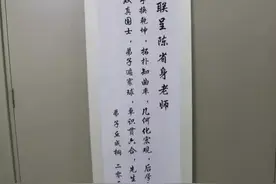 联呈陈省身老师
手换乾坤，拓扑知曲率，几何化宏观，后学
双真国士，弟子遍寰球，卓识贯六合，先生
弟子丘成桐 二零